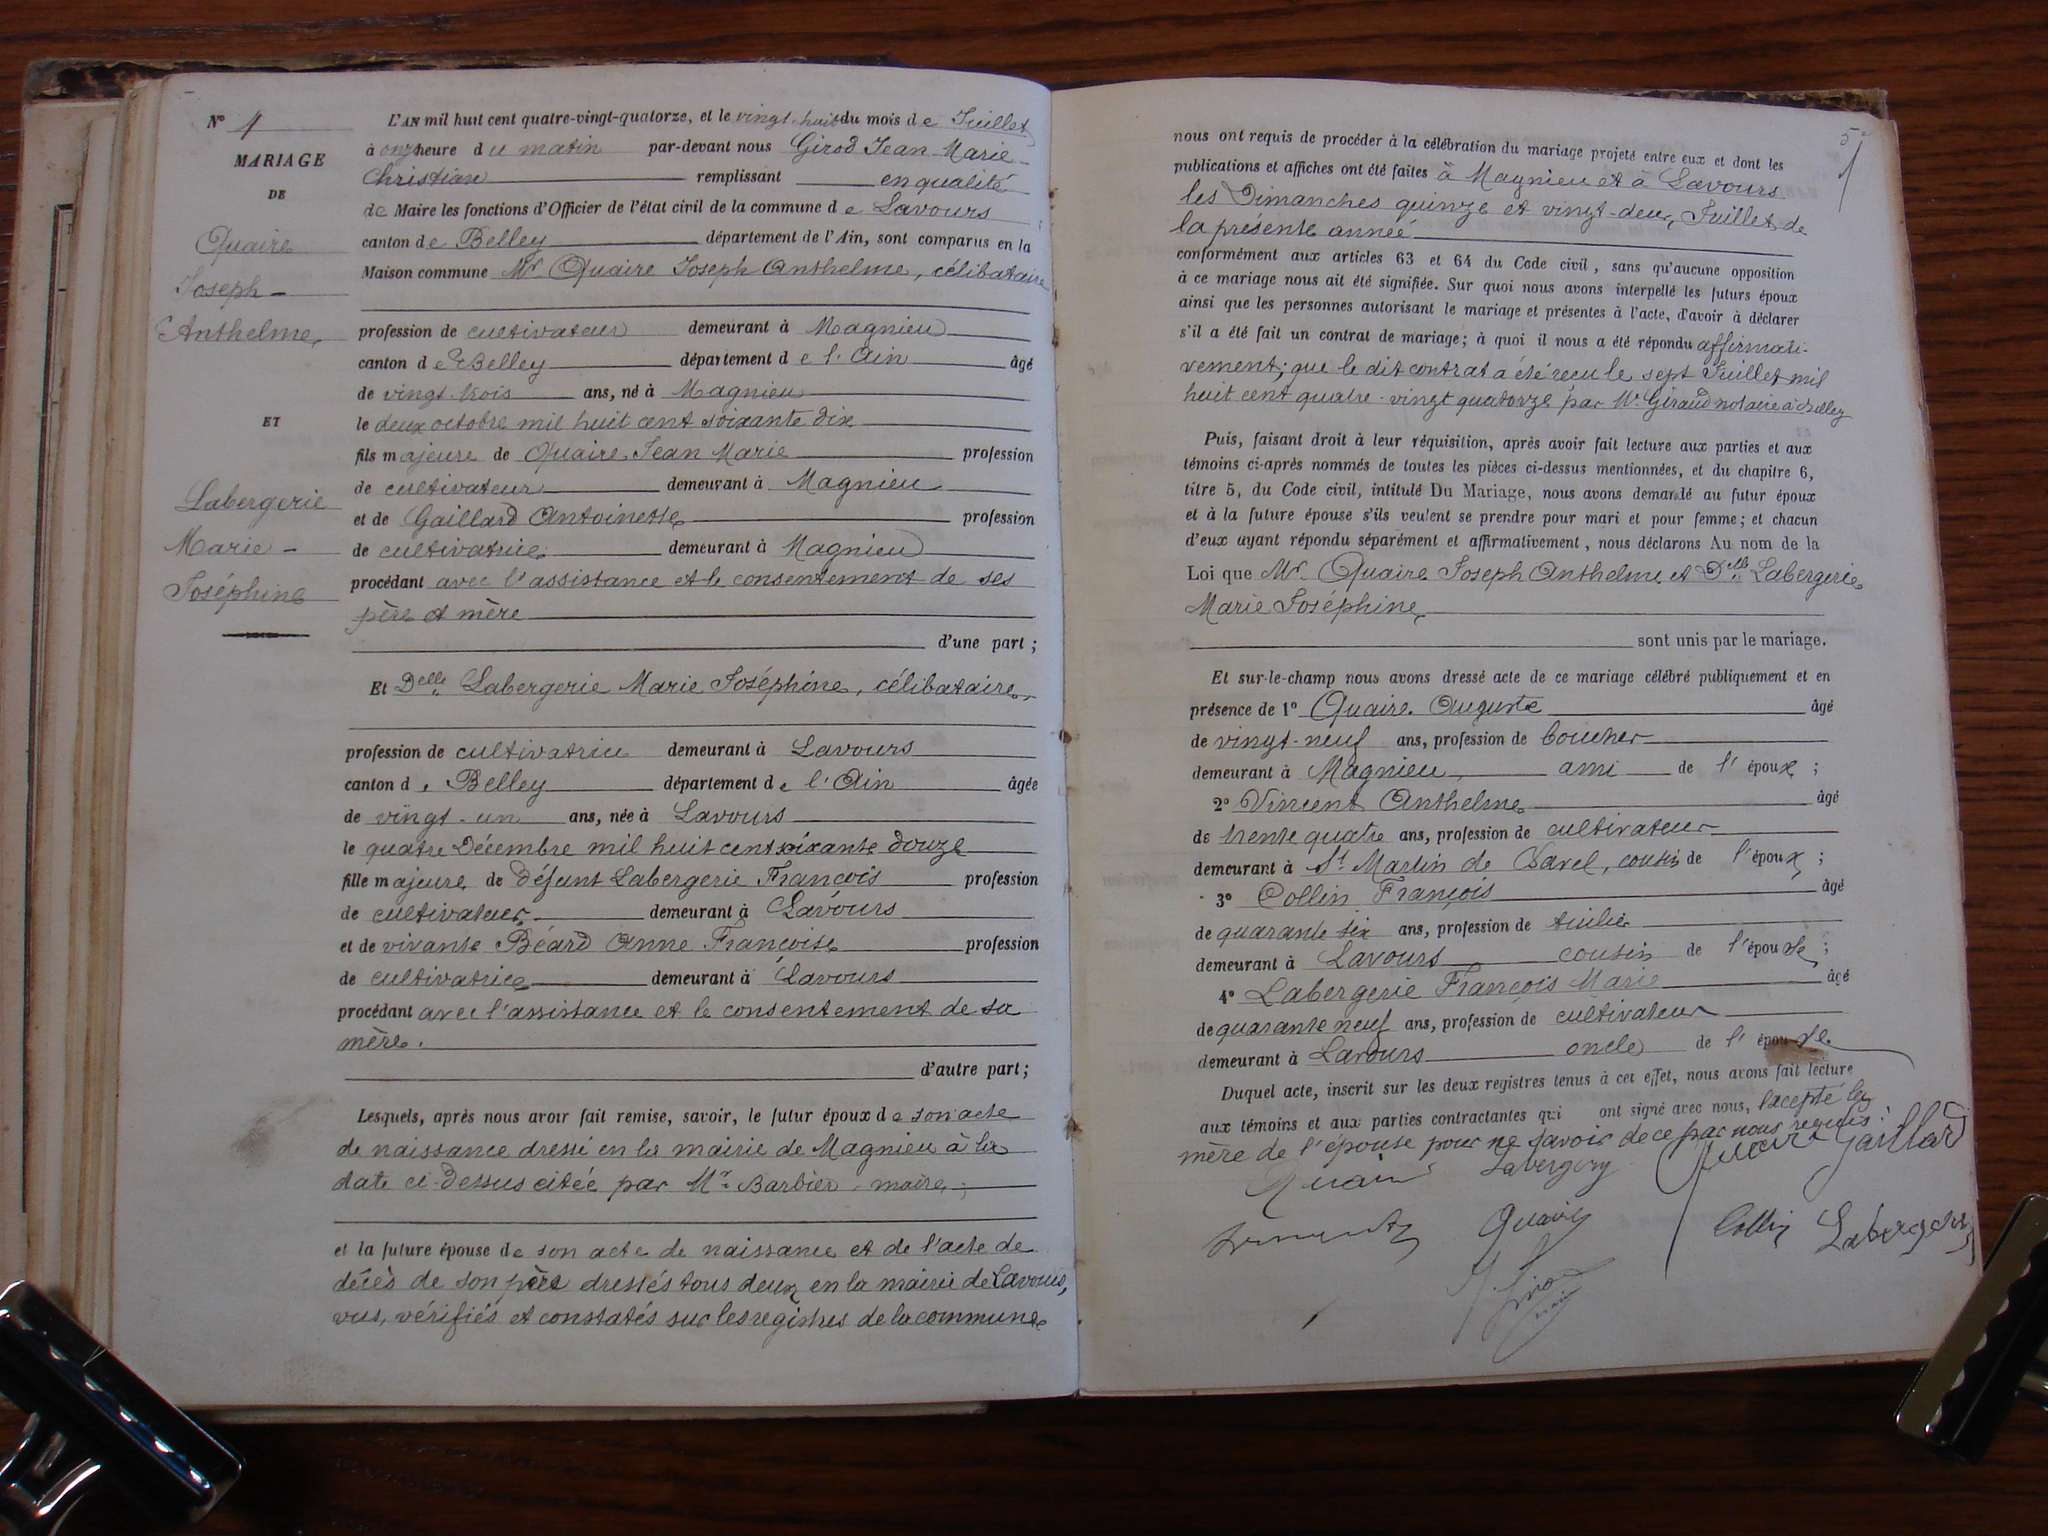 N° 4
MARIAGE
DE
Quaire
Joseph -
Anthelme,
ET
Labergerie
Marie -
Joséphine
L'AN mil huit cent quatre-vingt-quatorze, et le vingt-huit du mois de Juillet
à onze heure du matin par-devant nous Girod Jean-Marie-
Christian remplissant en qualité
de Maire les fonctions d'Officier de l'état civil de la commune de Lavours
canton de Belley département de l'Ain, sont comparus en la
Maison commune Mr Quaire Joseph Anthelme, célibataire
profession de cultivateur demeurant à Magnieu
canton de Belley département de l'Ain âgé
de vingt trois ans, né à Magnieu
le deux octobre mil huit cent soixante dix
fils majeure de Quaire Jean Marie profession
de cultivateur demeurant à Magnieu
et de Gaillard Antoinette profession
de cultivatrice demeurant à Magnieu
procédant avec l'assistance et le consentement de ses
père et mère
d'une part ;
Et Delle Labergerie Marie Joséphine, célibataire
profession de cultivatrice demeurant à Lavours
canton de Belley département de l'Ain âgée
de vingt-un ans, née à Lavours
le quatre Décembre mil huit cent soixante douze
fille majeure de défunt Labergerie François profession
de cultivateur demeurant à Lavours
et de vivante Béard Anne Françoise profession
de cultivatrice demeurant à Lavours
procédant avec l'assistance et le consentement de sa
mère.
d'autre part ;
Lesquels, après nous avoir fait remise, savoir, le futur époux de son acte
de naissance dressé en la mairie de Magnieu à la
date ci-dessus citée par Mr Barbier - maire ;
et la future épouse de son acte de naissance et de l'acte de
décès de son père dressés tous deux en la mairie de Lavours,
vus, vérifiés et constatés sur les registres de la commune
5
nous ont requis de procéder à la célébration du mariage projeté entre eux et dont les
publications et affiches ont été faites à Magnieu et à Lavours
les Dimanches quinze et vingt-deux Juillet de
la présente année
conformément aux articles 63 et 64 du Code civil, sans qu'aucune opposition
à ce mariage nous ait été signifiée. Sur quoi nous avons interpellé les futurs époux
ainsi que les personnes autorisant le mariage et présentes à l'acte, d'avoir à déclarer
s'il a été fait un contrat de mariage ; à quoi il nous a été répondu affirmati-
vement ; que le dit contrat a été recu le sept Juillet mil
huit cent quatre-vingt quatorze par Me Giraud notaire à Belley
Puis, faisant droit à leur réquisition, après avoir fait lecture aux parties et aux
témoins ci-après nommés de toutes les pièces ci-dessus mentionnées, et du chapitre 6,
titre 5, du Code civil, intitulé Du Mariage, nous avons demandé au futur époux
et à la future épouse s'ils veulent se prendre pour mari et pour femme ; et chacun
d'eux ayant répondu séparément et affirmativement, nous déclarons Au nom de la
Loi que Mr Quaire Joseph Anthelme et Delle Labergerie
Marie Joséphine
sont unis par le mariage.
Et sur-le-champ nous avons dressé acte de ce mariage célébré publiquement et en
présence de 1° Quaire Auguste âgé
de vingt-neuf ans, profession de boucher
demeurant à Magnieu ami de l'époux ;
2° Vincent Anthelme âgé
de trente quatre ans, profession de cultivateur
demeurant à St Martin de Bavel, cousin de l'époux ;
3° Collin François âgé
de quarante six ans, profession de tuilier
demeurant à Lavours cousin de l'épouse ;
4° Labergerie François Marie âgé
de quarante neuf ans, profession de cultivateur
demeurant à Lavours oncle de l'épouse.
Duquel acte, inscrit sur les deux registres tenus à cet effet, nous avons fait lecture
aux témoins et aux parties contractantes qui ont signé avec nous, excepté la
mère de l'épouse pour ne savoir de ce par nous requis.
Quaire Labergery Quaire Gaillard
Quaire Collin Labergerie